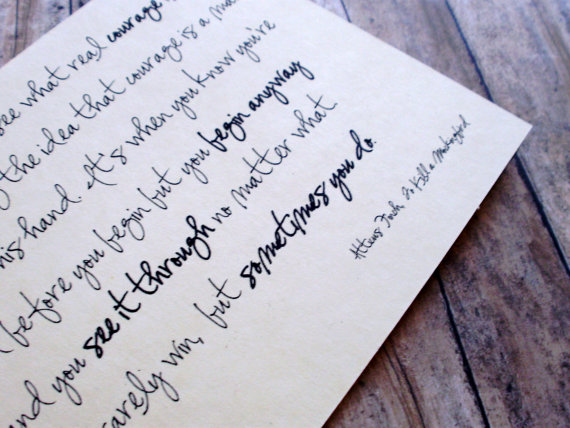 see what real courage
the idea that courage is a
his hand. It's when you know you're
before you begin but you begin anyway
and you see it through no matter what.
rarely win, but sometimes you do.
Atticus Finch